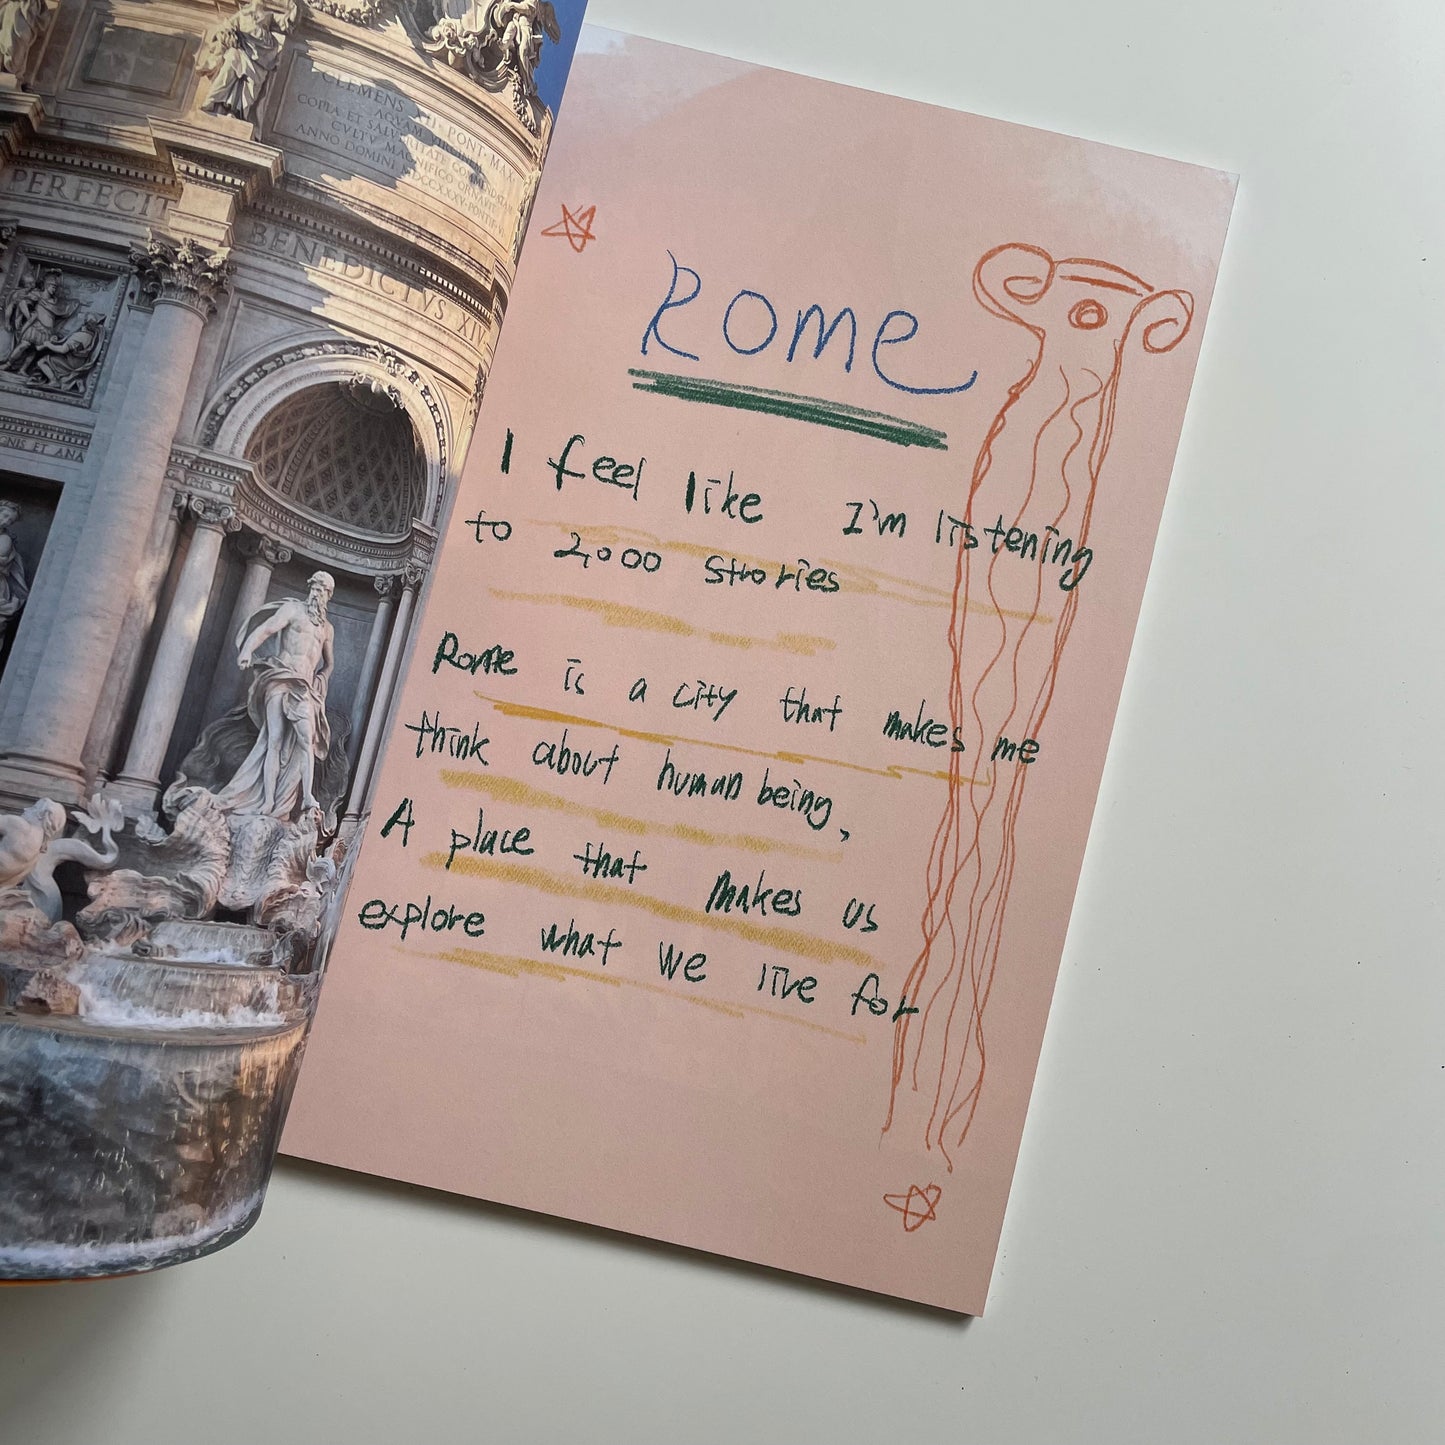 CLEMENS XII PONT MAX
AQVAM VIRGINEM
COPIA ET SALVBRITATE COMMENDATAM
CVLTV MAGNIFICO ORNAVIT
ANNO DOMINI MDCCXXXV PONTIF VI
PERFECIT
BENEDICTVS XIV
ROME
I feel like I'm listening
to 2,000 Strories
Rome is a city that makes me
think about human being,
A place that makes us
explore what we live for